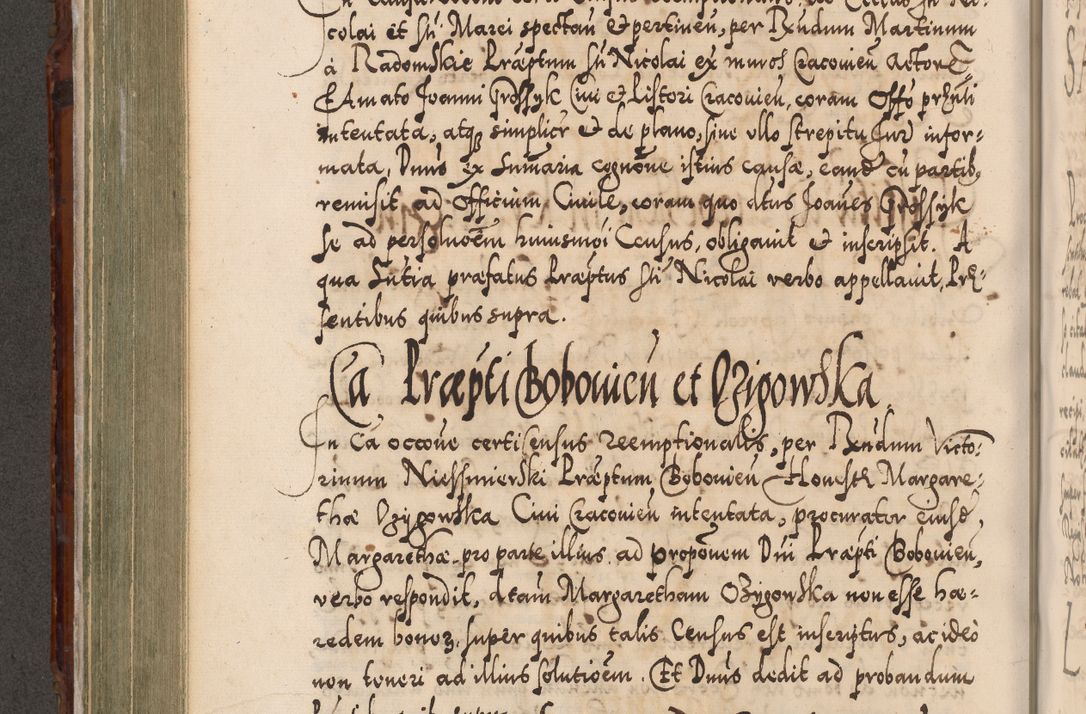 colai et Sti Marci spectań & pertineń, per Rńdum Martinum
à Radomskie Præptum Sti Nicolai ex muros Cracovień Actorē
& Amato Joanni Grossyk Civi et Pistori Cracovień, coram Offő prznti
intentata, atq₃ simplicr & de plano, sine ullo strepitu Jurd infor-
mata, Dnus ex Sumaria cognőne istius causæ, eand cū partib₉
remisit ad Officium Civile, coram quo dtus Joańes Grossyk
se ad persolvoēm huiusmői Census, obligavit & inscripsit. A
qua Sntia præfatus Præptus Sti Nicolai verbo appellavit, Præ-
sentibus quibus supra.
Ca Præpti Bobovień et Ożigowska
In Ca occőne certi census reemptionalis, per Rńdum Victo-
rinum Niessmierski Præptum Bobovień Honestæ Margare-
thæ Ożygowska Civi Cracovień intentata, procurator eiusd,
Margarethæ pro parte illius ad propőnem Dńi Præpti Bobovień,
verbo respondit, dtam Margaretham Ożygowska non esse hæ-
redem bonoȝ, super quibus talis Census est inscriptus, ac ideò
non teneri ad illius solutioēm. Et Dnus dedit ad probandum